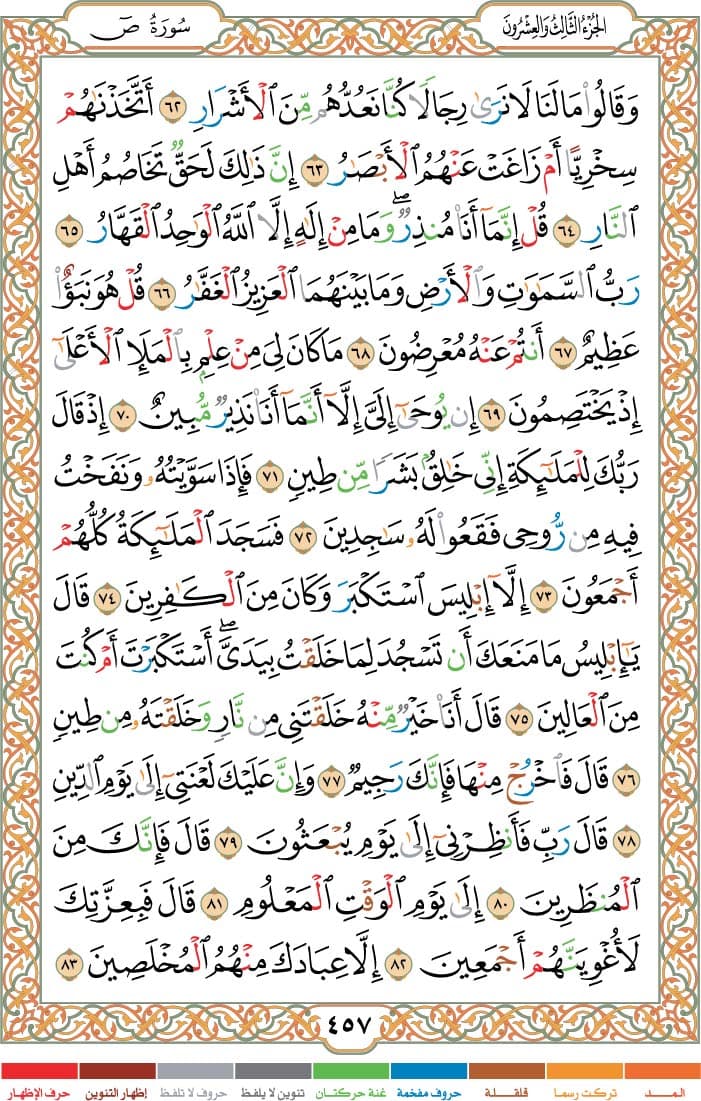 الجُزْءُ الثَّالِثُ وَالعِشْرُونَ
سُورَةُ صٓ
وَقَالُوا۟ مَا لَنَا لَا نَرَىٰ رِجَالًا كُنَّا نَعُدُّهُم مِّنَ ٱلْأَشْرَارِ ٦٢ أَتَّخَذْنَٰهُمْ
سِخْرِيًّا أَمْ زَاغَتْ عَنْهُمُ ٱلْأَبْصَٰرُ ٦٣ إِنَّ ذَٰلِكَ لَحَقٌّ تَخَاصُمُ أَهْلِ
ٱلنَّارِ ٦٤ قُلْ إِنَّمَآ أَنَا۠ مُنذِرٌ ۖ وَمَا مِنْ إِلَٰهٍ إِلَّا ٱللَّهُ ٱلْوَٰحِدُ ٱلْقَهَّارُ ٦٥
رَبُّ ٱلسَّمَٰوَٰتِ وَٱلْأَرْضِ وَمَا بَيْنَهُمَا ٱلْعَزِيزُ ٱلْغَفَّٰرُ ٦٦ قُلْ هُوَ نَبَؤٌا۟
عَظِيمٌ ٦٧ أَنتُمْ عَنْهُ مُعْرِضُونَ ٦٨ مَا كَانَ لِىَ مِنْ عِلْمٍۭ بِٱلْمَلَإِ ٱلْأَعْلَىٰٓ
إِذْ يَخْتَصِمُونَ ٦٩ إِن يُوحَىٰٓ إِلَىَّ إِلَّآ أَنَّمَآ أَنَا۠ نَذِيرٌ مُّبِينٌ ٧٠ إِذْ قَالَ
رَبُّكَ لِلْمَلَٰٓئِكَةِ إِنِّى خَٰلِقٌۢ بَشَرًا مِّن طِينٍ ٧١ فَإِذَا سَوَّيْتُهُۥ وَنَفَخْتُ
فِيهِ مِن رُّوحِى فَقَعُوا۟ لَهُۥ سَٰجِدِينَ ٧٢ فَسَجَدَ ٱلْمَلَٰٓئِكَةُ كُلُّهُمْ
أَجْمَعُونَ ٧٣ إِلَّآ إِبْلِيسَ ٱسْتَكْبَرَ وَكَانَ مِنَ ٱلْكَٰفِرِينَ ٧٤ قَالَ
يَٰٓإِبْلِيسُ مَا مَنَعَكَ أَن تَسْجُدَ لِمَا خَلَقْتُ بِيَدَىَّ ۖ أَسْتَكْبَرْتَ أَمْ كُنتَ
مِنَ ٱلْعَالِينَ ٧٥ قَالَ أَنَا۠ خَيْرٌ مِّنْهُ ۖ خَلَقْتَنِى مِن نَّارٍ وَخَلَقْتَهُۥ مِن طِينٍ
٧٦ قَالَ فَٱخْرُجْ مِنْهَا فَإِنَّكَ رَجِيمٌ ٧٧ وَإِنَّ عَلَيْكَ لَعْنَتِىٓ إِلَىٰ يَوْمِ ٱلدِّينِ
٧٨ قَالَ رَبِّ فَأَنظِرْنِىٓ إِلَىٰ يَوْمِ يُبْعَثُونَ ٧٩ قَالَ فَإِنَّكَ مِنَ
ٱلْمُنظَرِينَ ٨٠ إِلَىٰ يَوْمِ ٱلْوَقْتِ ٱلْمَعْلُومِ ٨١ قَالَ فَبِعِزَّتِكَ
لَأُغْوِيَنَّهُمْ أَجْمَعِينَ ٨٢ إِلَّا عِبَادَكَ مِنْهُمُ ٱلْمُخْلَصِينَ ٨٣
٤٥٧
المــــد تركت رسما قلقـلـة حروف مفخمة غنة حركتـان تنوين لا يلفظ حروف لا تلفظ إظهار التنوين حرف الإظهار